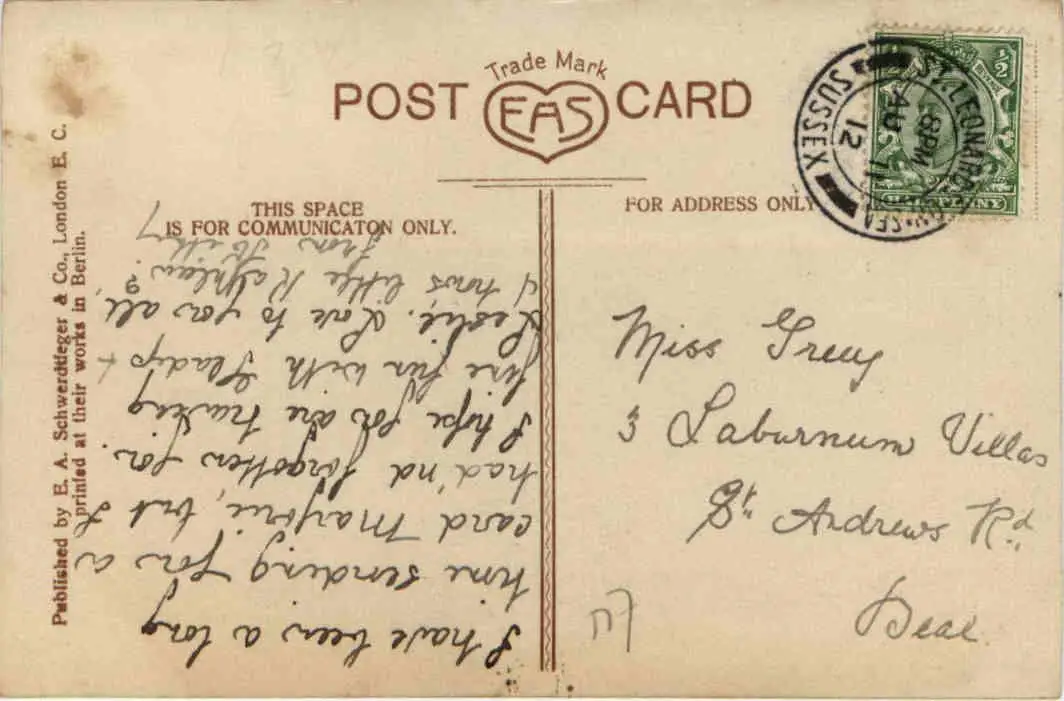 Trade Mark
POST EAS CARD
THIS SPACE
IS FOR COMMUNICATON ONLY.
FOR ADDRESS ONLY
Published by E. A. Schwerdtfeger & Co., London E. C.
printed at their works in Berlin.
I have been a long
time sending you a
card Marjorie, but I
had'nd forgotten you.
I hope you are having
fine fun with Gladys +
Leslie. Love to you all,
& hows little Kathleen?
from Kitty
Miss
3 Laburnum Villas
St. Andrews Rd.
Deal.
ST. LEONARDS-ON-SEA
8PM
AU 11
12
SUSSEX
1/2